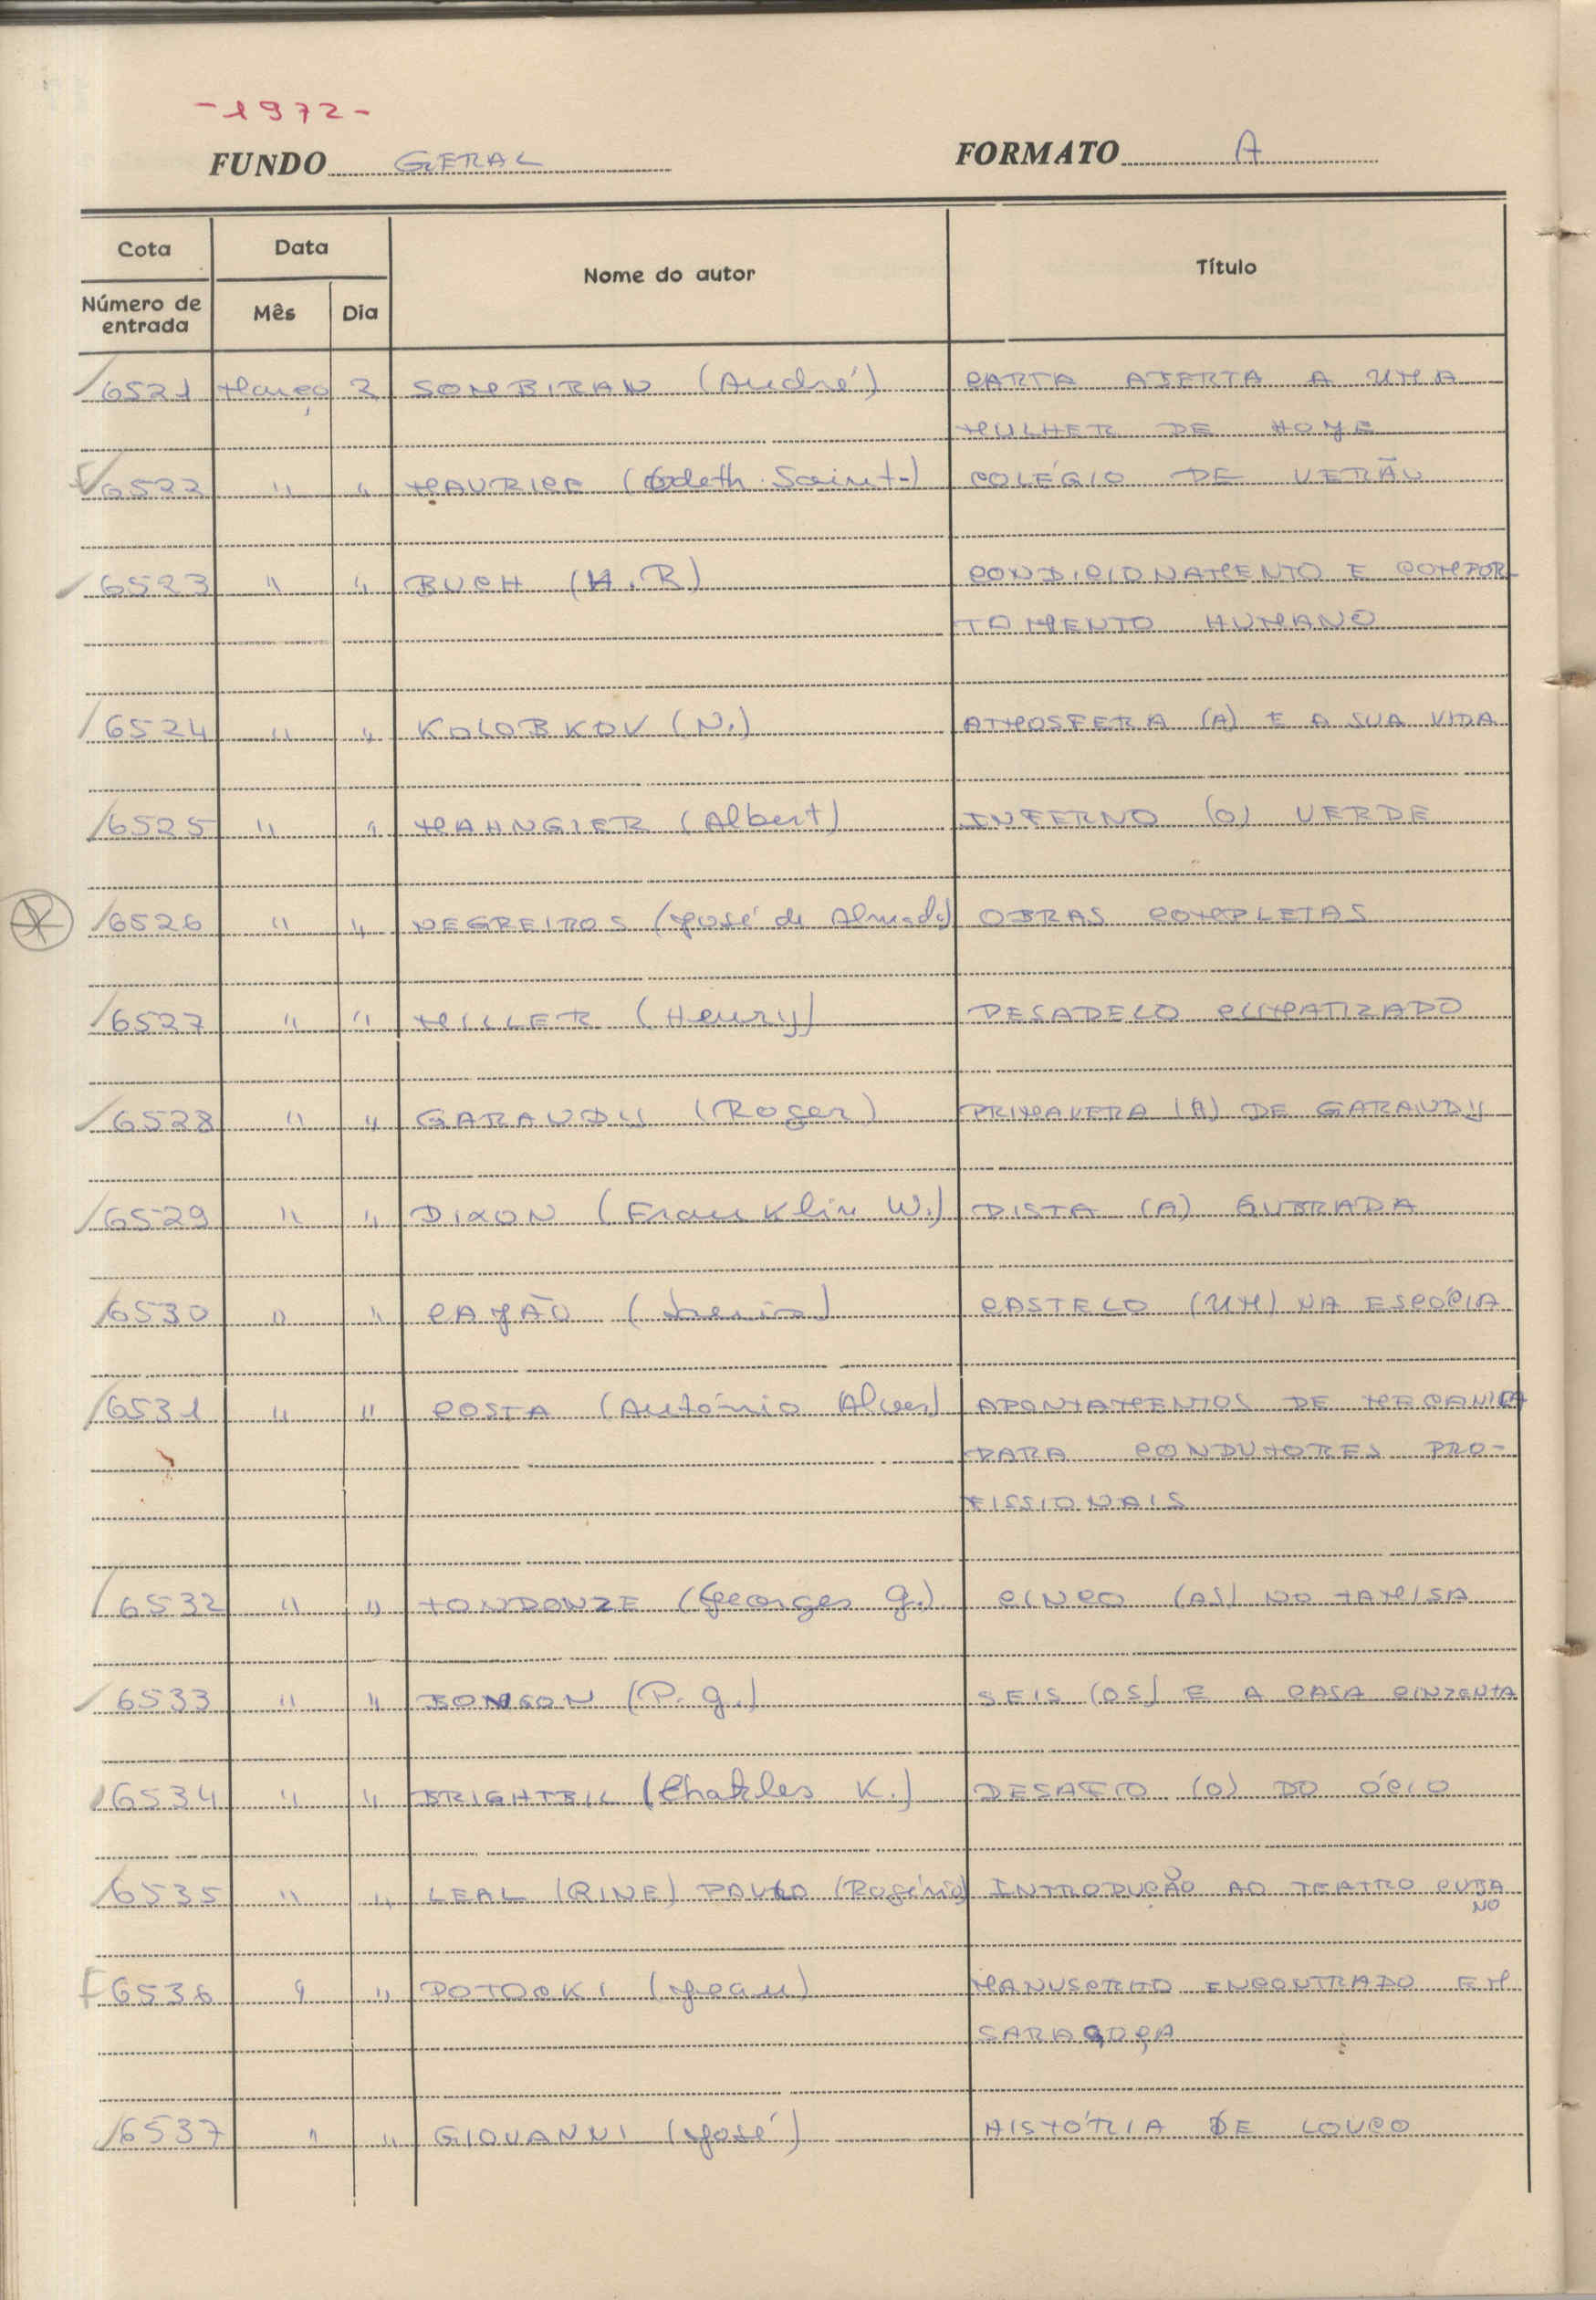 -1972-
FUNDO GERAL FORMATO A
Cota Data Nome do autor Título
Número de entrada Mês Dia
6521 Março 2 SOMBIRAN (André) CARTA ABERTA A UMA
MULHER DE HOJE
6522 " " MAURICE (Odeth Saint-) COLÉGIO DE VERÃO
6523 " " BUCH (H.R) CONDICIONAMENTO E COMPOR
TAMENTO HUMANO
6524 " " KOLOBKOV (N.) ATMOSFERA (A) E A SUA VIDA
6525 " " MAHNGIER (Albert) INFERNO (O) VERDE
6526 " " NEGREIROS (José de Almada) OBRAS COMPLETAS
6527 " " MILLER (Henry) PESADELO CLIMATIZADO
6528 " " GARAUDY (Roger) PRIMAVERA (A) DE GARAUDY
6529 " " DIXON (Franklin W.) PISTA (A) QUEBRADA
6530 " " CAJÃO (Luis) CASTELO (UM) NA ESCÓCIA
6531 " " COSTA (António Alves) APONTAMENTOS DE MECANICA
PARA CONDUTORES PRO-
FISSIONAIS
6532 " " TONDONZE (Georges G.) CINCO (OS) NO TAMISA
6533 " " BONSON (P. J.) SEIS (OS) E A CASA CINZENTA
6534 " " BRIGHTBIL (Charles K.) DESAFIO (O) DO ÓCIO
6535 " " LEAL (RINE) PAULO (Rogério) INTRODUÇÃO AO TEATRO CUBA
NO
6536 " " POTOCKI (Jean) MANUSCRITO ENCONTRADO EM
SARAGOÇA
6537 " " GIOVANNI (José) HISTÓRIA DE LOUCO